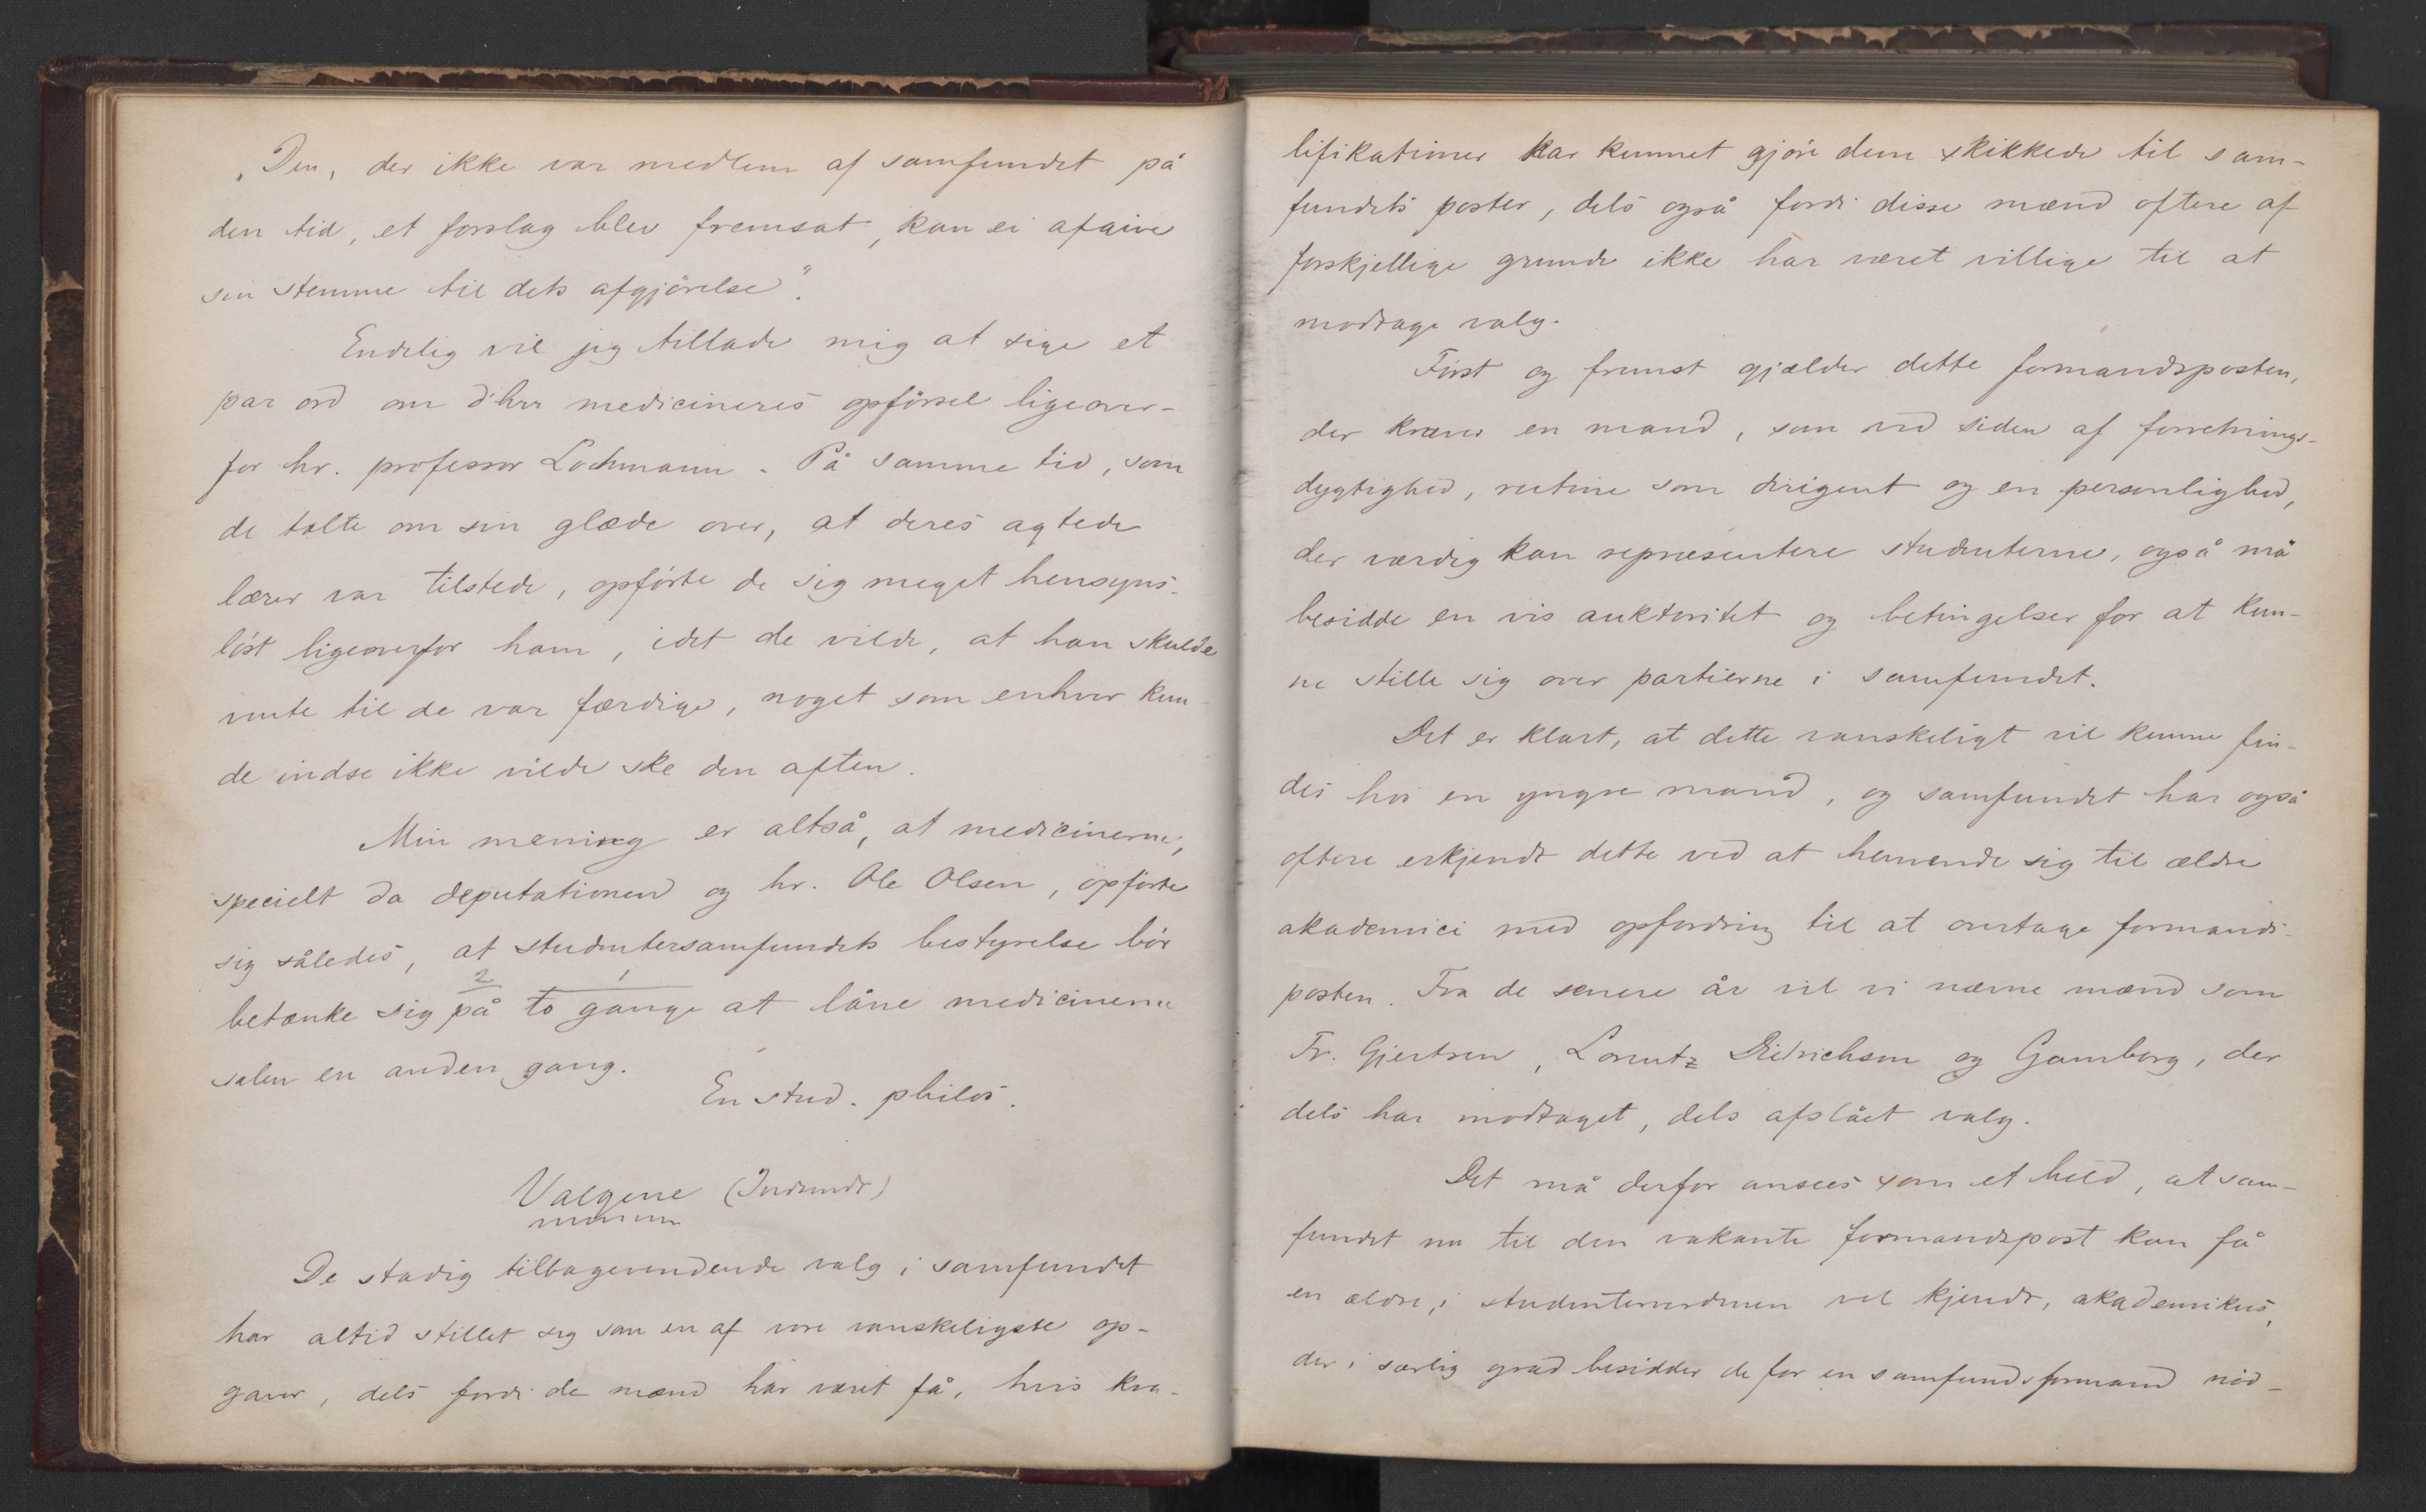 „Den, der ikke var medlem af samfundet på
den tid, et forslag blev fremsat, kan ei afgive
sin stemme til dets afgjörelse".
Endelig vil jeg tillade mig at sige et
par ord om d'hrr medicineres opførsel ligeover-
for hr. professor Lochmann. På samme tid, som
de talte om sin glæde over, at deres agtede
lærer var tilstede, opförte de sig meget hensyns-
löst ligeoverfor ham, idet de vilde, at han skulde
vente til de var færdige, noget som enhver kun-
de indse ikke vilde ske den aften.
Min mening er altså, at medicinerne,
specielt da deputationen og hr. Ole Olsen, opförte
sig således, at studentersamfundets bestyrelse bör
betænke sig på to gange at låne medicinerne
2 1
salen en anden gang.
En stud. philos.
Valgene (Indsendt)
De stadig tilbagevendende valg i samfundet
har altid stillet sig som en af vore vanskeligste op-
gaver, dels fordi de mænd har været få, hvis kva-
lifikationer har kunnet gjöre dem skikkede til sam-
fundets poster, dels også fordi disse mænd oftere af
forskjellige grunde ikke har været villige til at
modtage valg.
Först og fremst gjælder dette formandsposten,
der kræver en mand, som ved siden af forretnings-
dygtighed, rutine som dirigent og en personlighed,
der værdig kan repræsentere studenterne, også må
besidde en vis auktoritet og betingelser for at kun-
ne stille sig over partierne i samfundet.
Det er klart, at dette vanskeligt vil kunne fin-
des hos en yngre mand, og samfundet har også
oftere erkjendt dette ved at henvende sig til ældre
akademici med opfordring til at overtage formands-
posten. Fra de senere år vil vi nævne mænd som
Fr. Gjertsen, Lorentz Dietrichson og Gamborg, der
dels har modtaget, dels afslået valg.
Det må derfor ansees som et held, at sam-
fundet nu til den vakante formandspost kan få
en ældre, i studenterverdenen vel kjendt, akademikus,
der i særlig grad besidder de for en samfundsformand nöd-